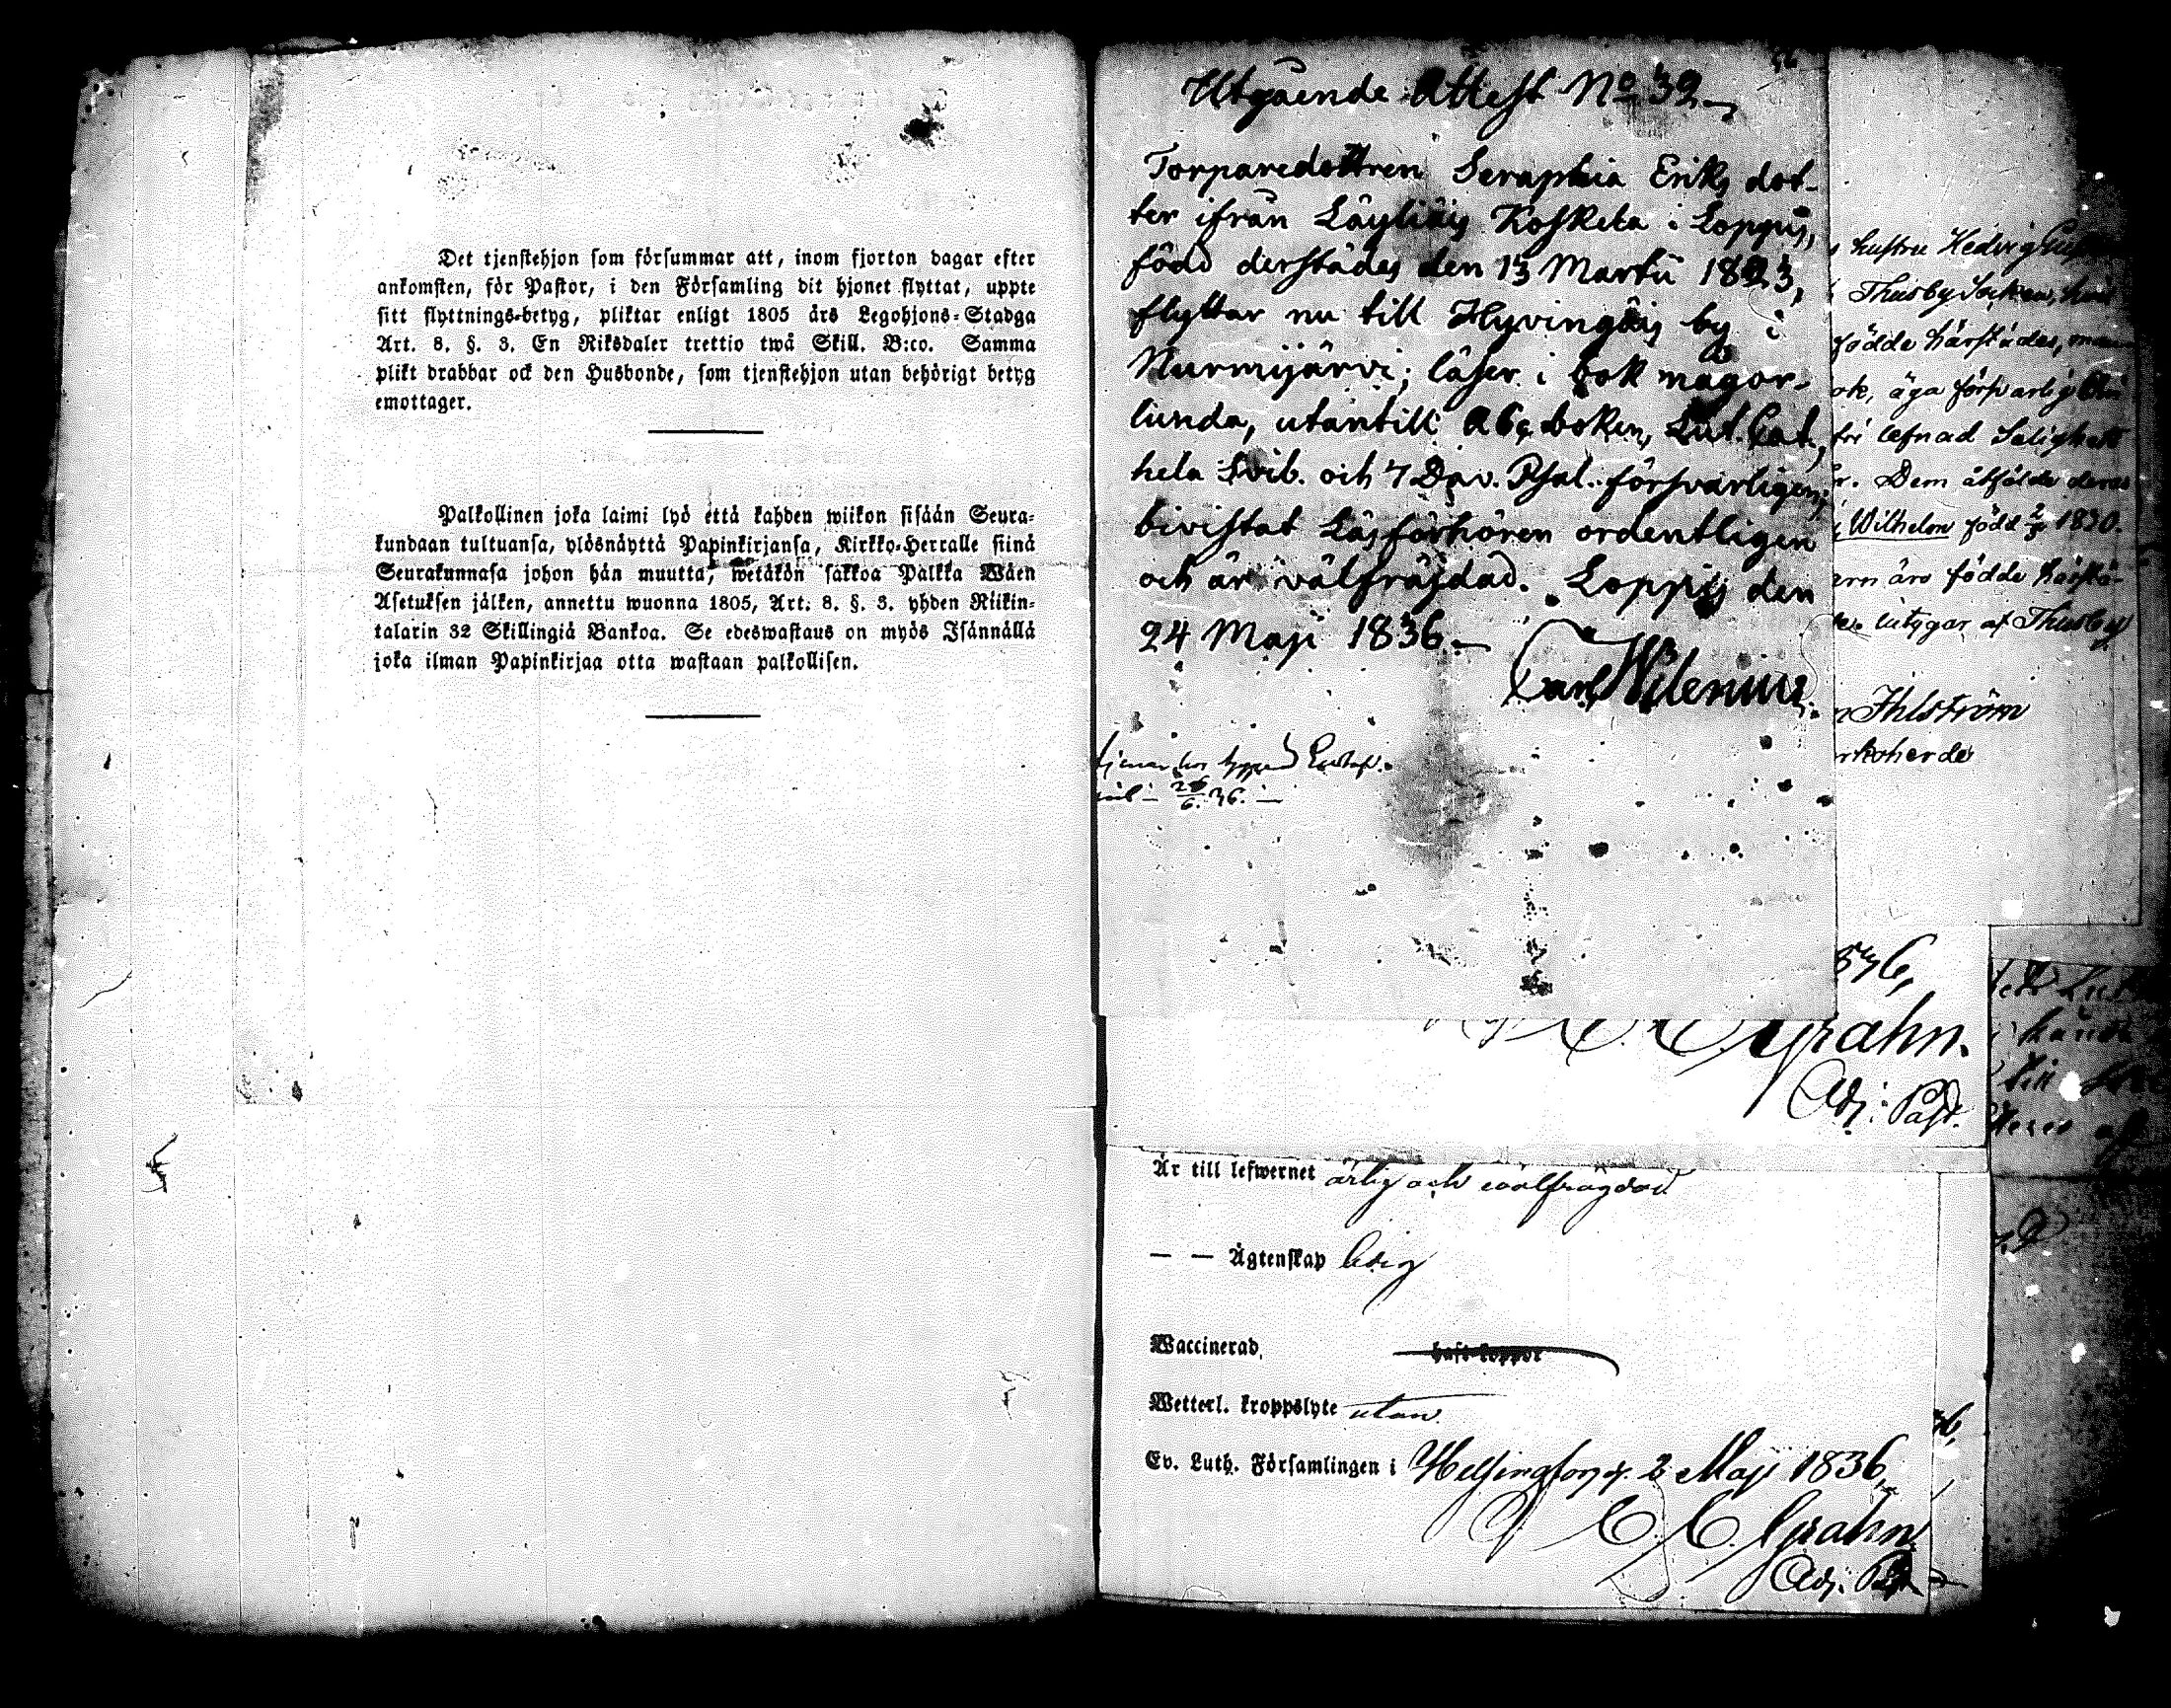 Det tjenstehjon som försummar att, inom fjorton dagar efter
ankomsten, för Pastor, i den Församling dit hjonet flyttat, uppte
sitt flyttnings-betyg, pliktar enligt 1805 års Legohjons-Stadga
Art. 8. §. 3. En Riksdaler trettio twå Skill. B:co. Samma
plikt drabbar ock den Husbonde, som tjenstehjon utan behörigt betyg
emottager.
Palkollinen joka laimi lyö että kahden wiikon sisään Seura-
kundaan tultuansa, ylösnäyttä Papinkirjansa, Kirkko-Herralle siinä
Seurakunnasa johon hän muutta, wetäkön sakkoa Palkka Wäen
Asetuksen jälken, annettu wuonna 1805, Art. 8. §. 3. yhden Riikin-
talarin 32 Skillingiä Bankoa. Se edeswastaus on myös Isännällä
joka ilman Papinkirjaa otta wastaan palkollisen.
Utgående Attest No 32
Torparedottren Seraphia Eriks dot-
ter ifrån Läyliäis Koskela i Loppis,
född derstädes den 13 Martii 1823,
flyttar nu till Hyvingäis by i
Nurmijärvi; läser i bok någor-
lunda, utantill Abc boken, Lut. Cat.,
hela Svib. och 7 Dav. Psal. försvarligen;
bivistat Läsförhören ordentligen
och är välfräjdad. Loppis den
24 Maji 1836.
Carl Wilenius
6. 36.
hustru Hedvig
Thusby Socken,
födde härstädes,
äga försvarlig
fri lefnad Salighets
Dem åtfölde deras
Wilhelm född 1830.
äro födde
utgår af Thusby
Ihlström
Grahn.
Adj. Past.
Är till lefwernet ärlig och wälfrägdad.
— — Ägtenskap ledig
Waccinerad, haft koppor
Wetterl. kroppslyte utan.
Ev. Luth. Församlingen i Helsingfors d. 2 Maji 1836,
C. C. Grahn
Adj. Past.